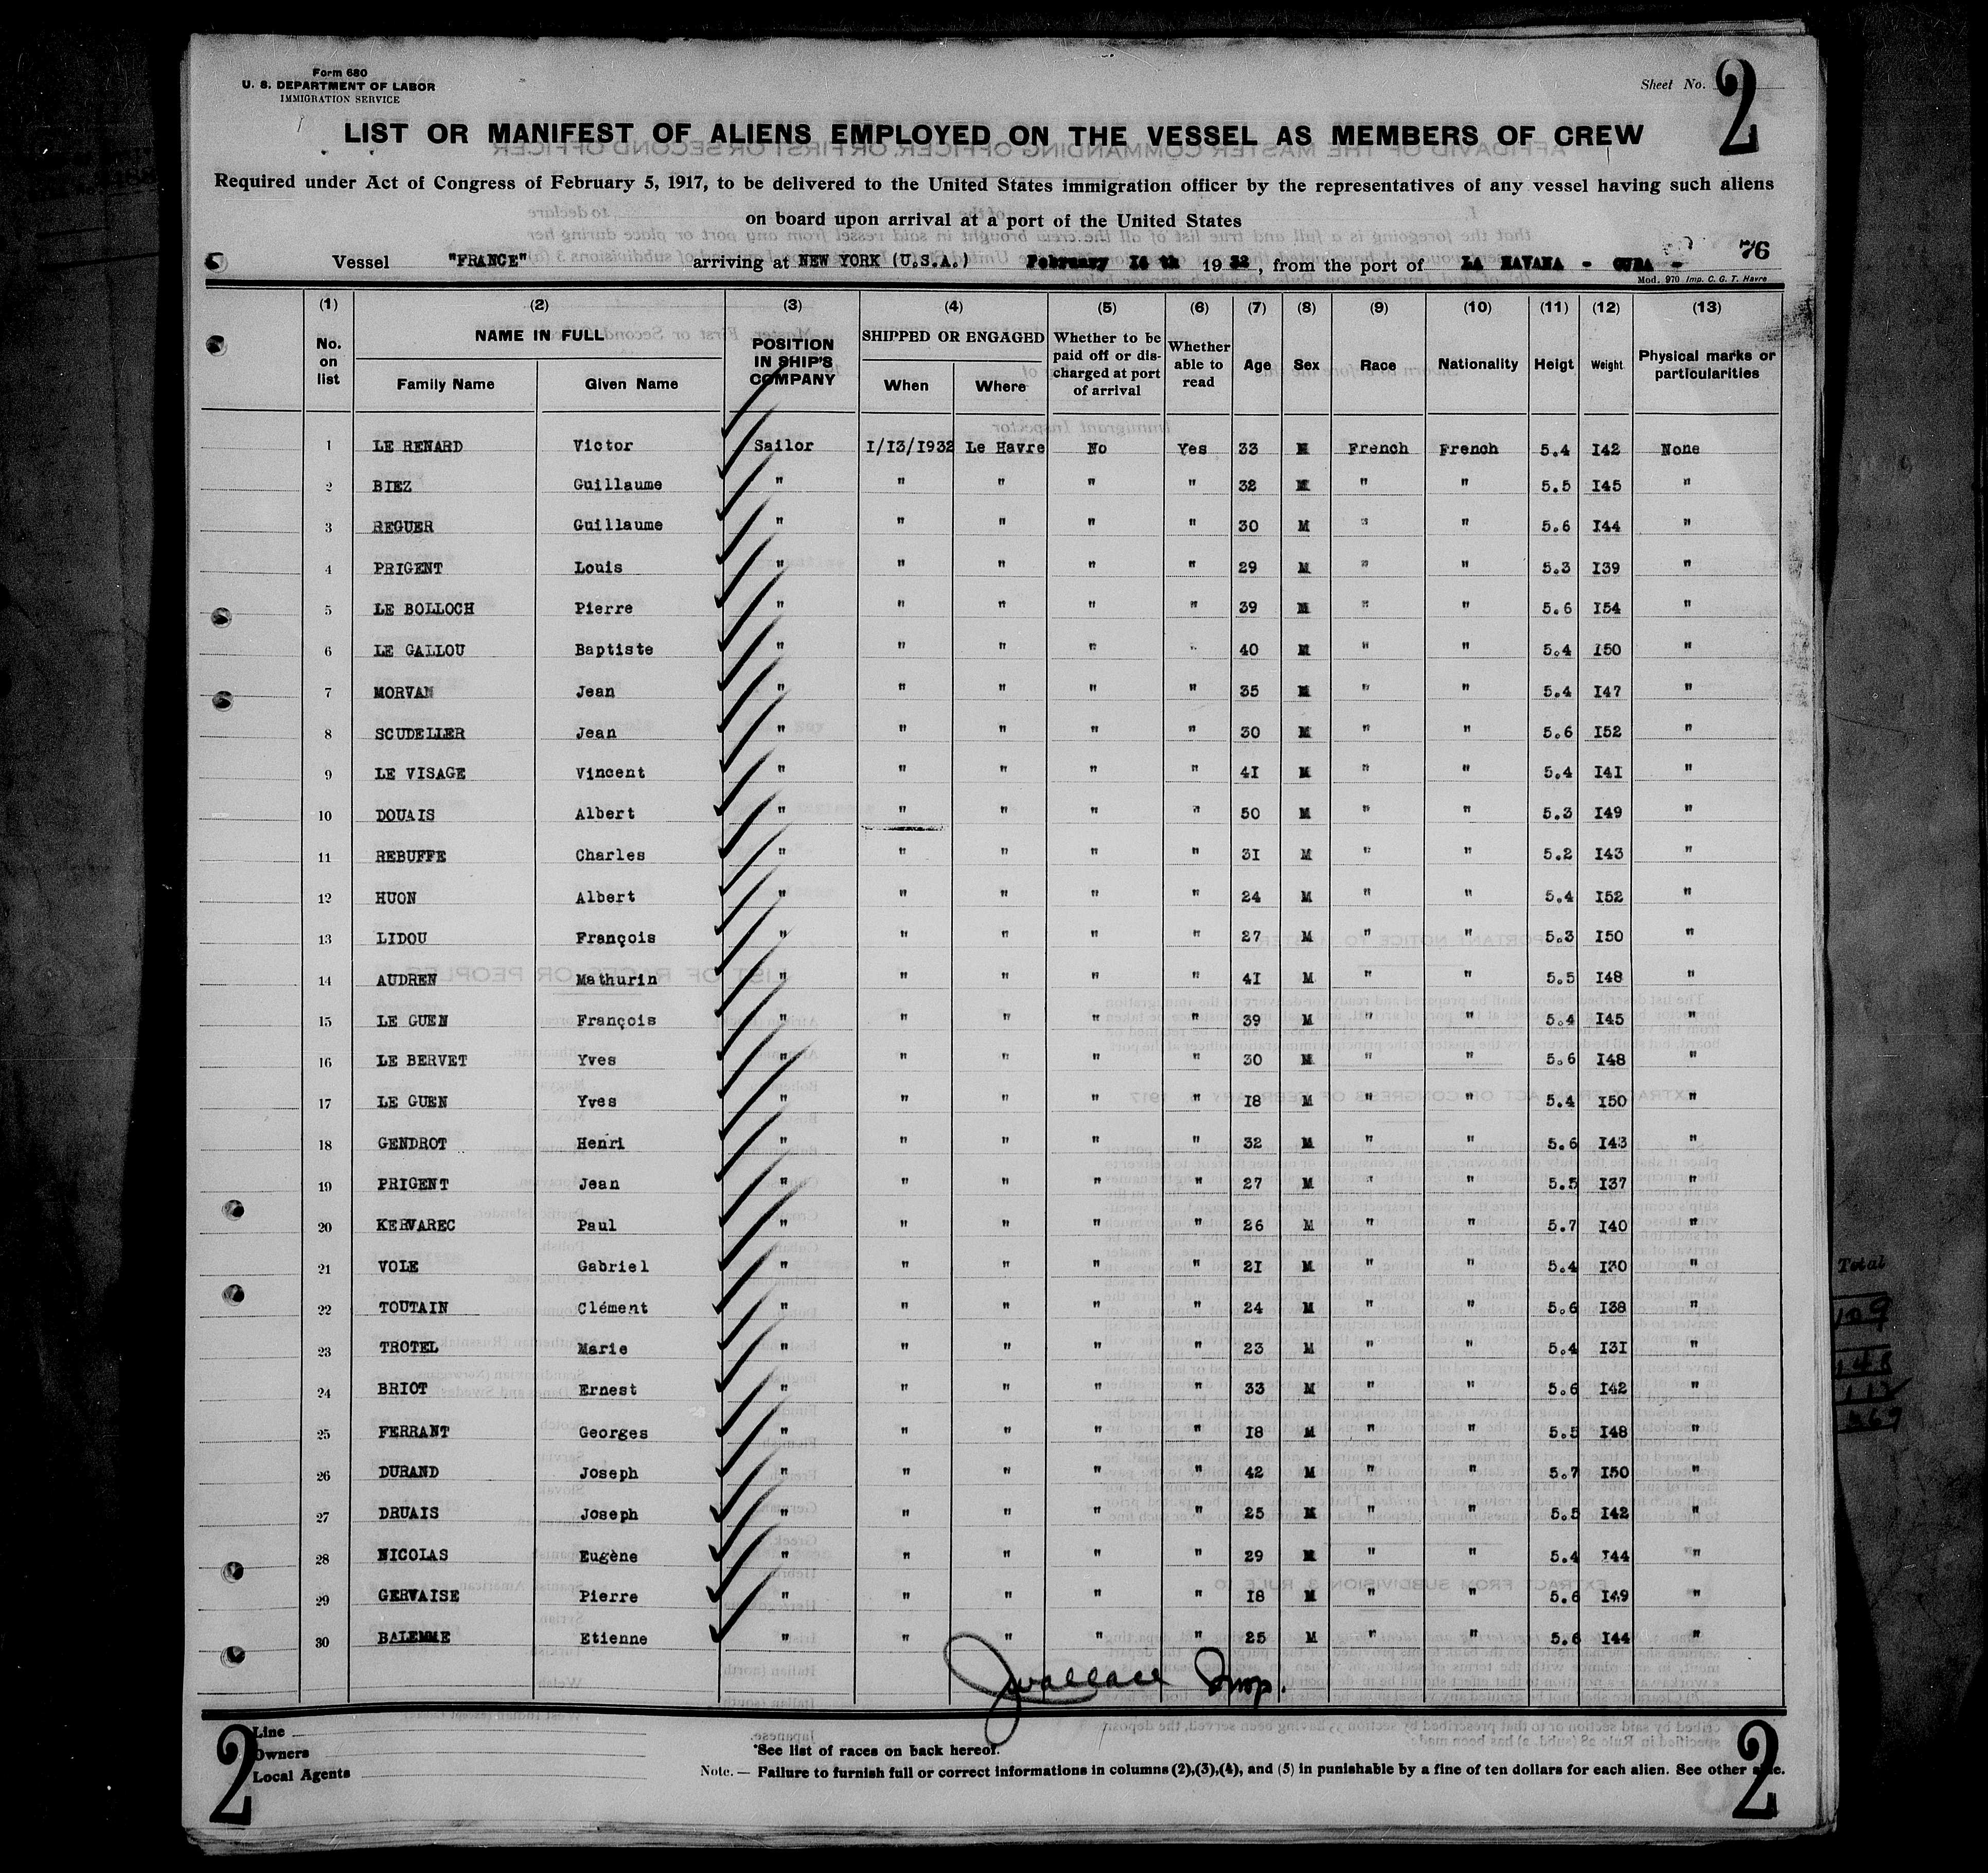 Form 680
U. S. DEPARTMENT OF LABOR
IMMIGRATION SERVICE
Sheet No. 2
LIST OR MANIFEST OF ALIENS EMPLOYED ON THE VESSEL AS MEMBERS OF CREW
Required under Act of Congress of February 5, 1917, to be delivered to the United States immigration officer by the representatives of any vessel having such aliens
on board upon arrival at a port of the United States
76
Vessel "FRANCE" arriving at NEW YORK (U.S.A.) February 16 th 1932, from the port of LA HAVANA - CUBA -
Mod. 970 Imp. C. G. T. Havre
(1) (2) (3) (4) (5) (6) (7) (8) (9) (10) (11) (12) (13)
No. on list NAME IN FULL Family Name Given Name POSITION IN SHIP'S COMPANY SHIPPED OR ENGAGED When Where Whether to be paid off or discharged at port of arrival Whether able to read Age Sex Race Nationality Heigt Weight Physical marks or particularities
1 LE RENARD Victor Sailor I/I3/I932 Le Havre No Yes 33 M French French 5.4 I42 None
2 BIEZ Guillaume " " " " " 32 M " " 5.5 I45 "
3 REGUER Guillaume " " " " " 30 M " " 5.6 I44 "
4 PRIGENT Louis " " " " " 29 M " " 5.3 I39 "
5 LE BOLLOCH Pierre " " " " " 39 M " " 5.6 I54 "
6 LE GALLOU Baptiste " " " " " 40 M " " 5.4 I50 "
7 MORVAN Jean " " " " " 35 M " " 5.4 I47 "
8 SCUDELLER Jean " " " " " 30 M " " 5.6 I52 "
9 LE VISAGE Vincent " " " " " 4I M " " 5.4 I4I "
10 DOUAIS Albert " " " " " 50 M " " 5.3 I49 "
11 REBUFFE Charles " " " " " 3I M " " 5.2 I43 "
12 HUON Albert " " " " " 24 M " " 5.4 I52 "
13 LIDOU François " " " " " 27 M " " 5.3 I50 "
14 AUDREN Mathurin " " " " " 4I M " " 5.5 I48 "
15 LE GUEN François " " " " " 39 M " " 5.4 I45 "
16 LE BERVET Yves " " " " " 30 M " " 5.6 I48 "
17 LE GUEN Yves " " " " " I8 M " " 5.4 I50 "
18 GENDROT Henri " " " " " 32 M " " 5.6 I43 "
19 PRIGENT Jean " " " " " 27 M " " 5.5 I37 "
20 KERVAREC Paul " " " " " 26 M " " 5.7 I40 "
21 VOLE Gabriel " " " " " 2I M " " 5.4 I30 "
22 TOUTAIN Clément " " " " " 24 M " " 5.6 I38 "
23 TROTEL Marie " " " " " 23 M " " 5.4 I3I "
24 BRIOT Ernest " " " " " 33 M " " 5.6 I42 "
25 FERRANT Georges " " " " " I8 M " " 5.5 I48 "
26 DURAND Joseph " " " " " 42 M " " 5.7 I50 "
27 DRUAIS Joseph " " " " " 25 M " " 5.5 I42 "
28 NICOLAS Eugène " " " " " 29 M " " 5.4 I44 "
29 GERVAISE Pierre " " " " " I8 M " " 5.6 I49 "
30 BALEMME Etienne " " " " " 25 M " " 5.6 I44 "
JWallace Insp.
2 Line 2
Owners
Local Agents
*See list of races on back hereof.
Note. — Failure to furnish full or correct informations in columns (2),(3),(4), and (5) in punishable by a fine of ten dollars for each alien. See other side.
Total
109